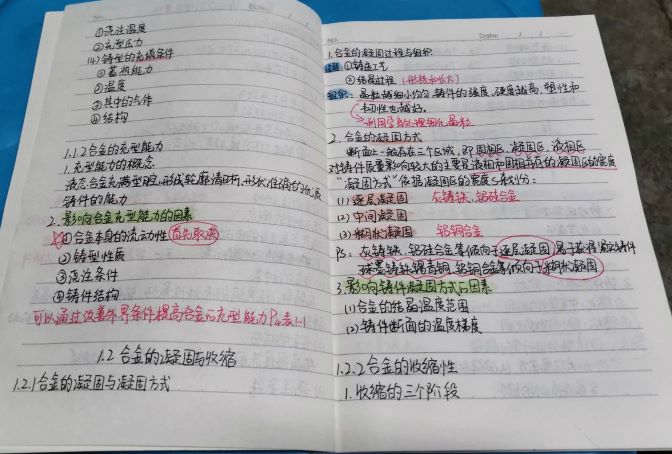 No.
Date:
①浇注温度
②充型压力
(4)铸型的充填条件
①蓄热能力
②温度
③其中的气体
④结构
1.1.2 合金的充型能力
1.充型能力的概念
液态合金充满型腔,形成轮廓清晰、形状准确的优质
铸件的能力
2.影响合金充型能力的因素
①合金本身的流动性 首先取决
②铸型性质
③浇注条件
④铸件结构
可以通过改善外界条件提高合金的充型能力P4表1-1
1.2 合金的凝固与收缩
1.2.1合金的凝固与凝固方式
No.
Date:
1.合金的凝固过程与组织
过程:①铸造工艺
②结晶过程(形核和长大)
组织:晶粒越细小均匀,铸件的强度、硬度越高,塑性和
韧性也越好。
利用孕育处理细化晶粒
2.合金的凝固方式
断面上一般存在三个区域,即固相区、凝固区、液相区
对铸件质量影响较大的主要是液相和固相并存的凝固区的宽度
"凝固方式"依据凝固区的宽度划分:
(1)逐层凝固 灰铸铁、铝硅合金
(2)中间凝固
(3)糊状凝固 铝铜合金
PS:灰铸铁、铝硅合金等倾向于逐层凝固,易于获得紧实铸件
球墨铸铁、锡青铜、铝铜合金等倾向于糊状凝固
3.影响铸件凝固方式的因素
(1)合金的结晶温度范围
(2)铸件断面的温度梯度
1.2.2合金的收缩性
1.收缩的三个阶段